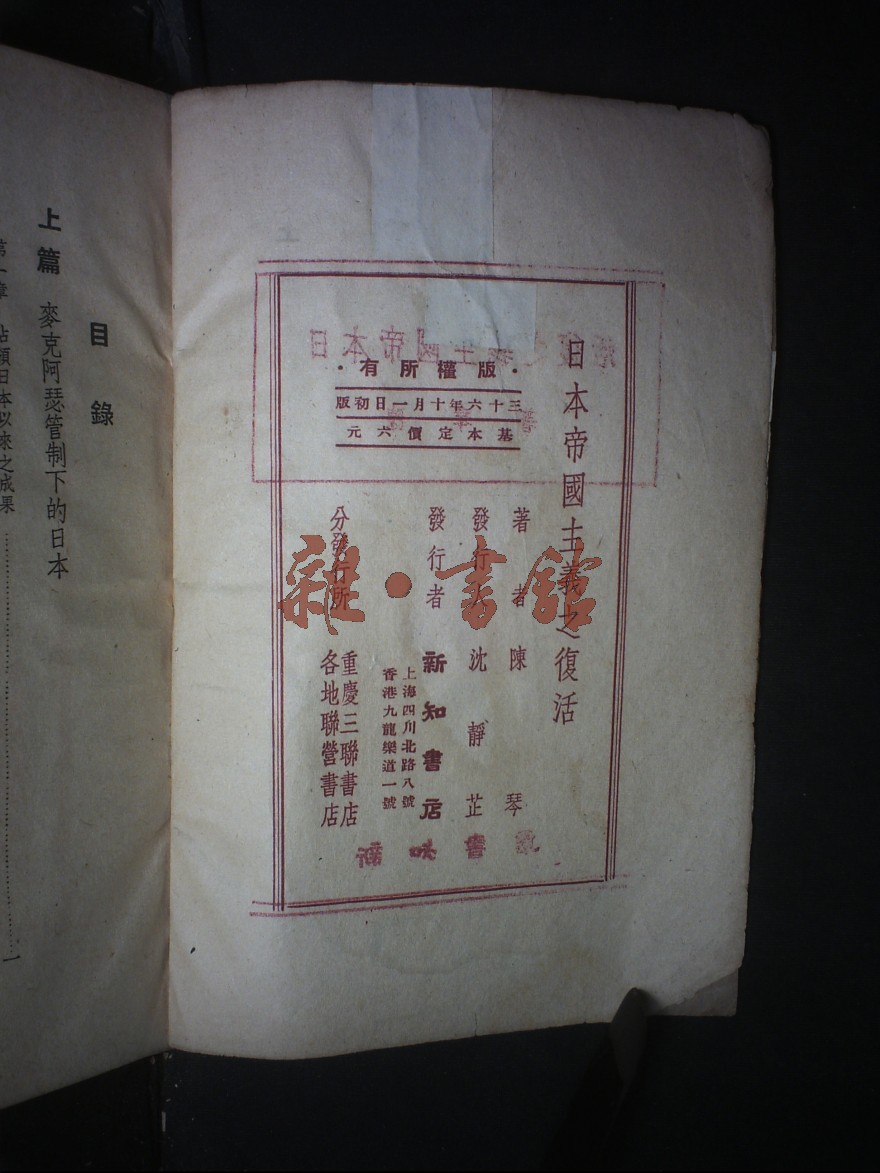 日本帝國主義之復活
·版權所有·
三十六年十月一日初版
基本定價六元
著者 陳琴
發行人 沈靜芷
發行者 新知書店
上海四川北路八號
香港九龍樂道一號
分發行所
重慶三聯書店
各地聯營書店
雜·書館
目錄
上篇 麥克阿瑟管制下的日本
第一章 佔領日本以來之成果……一